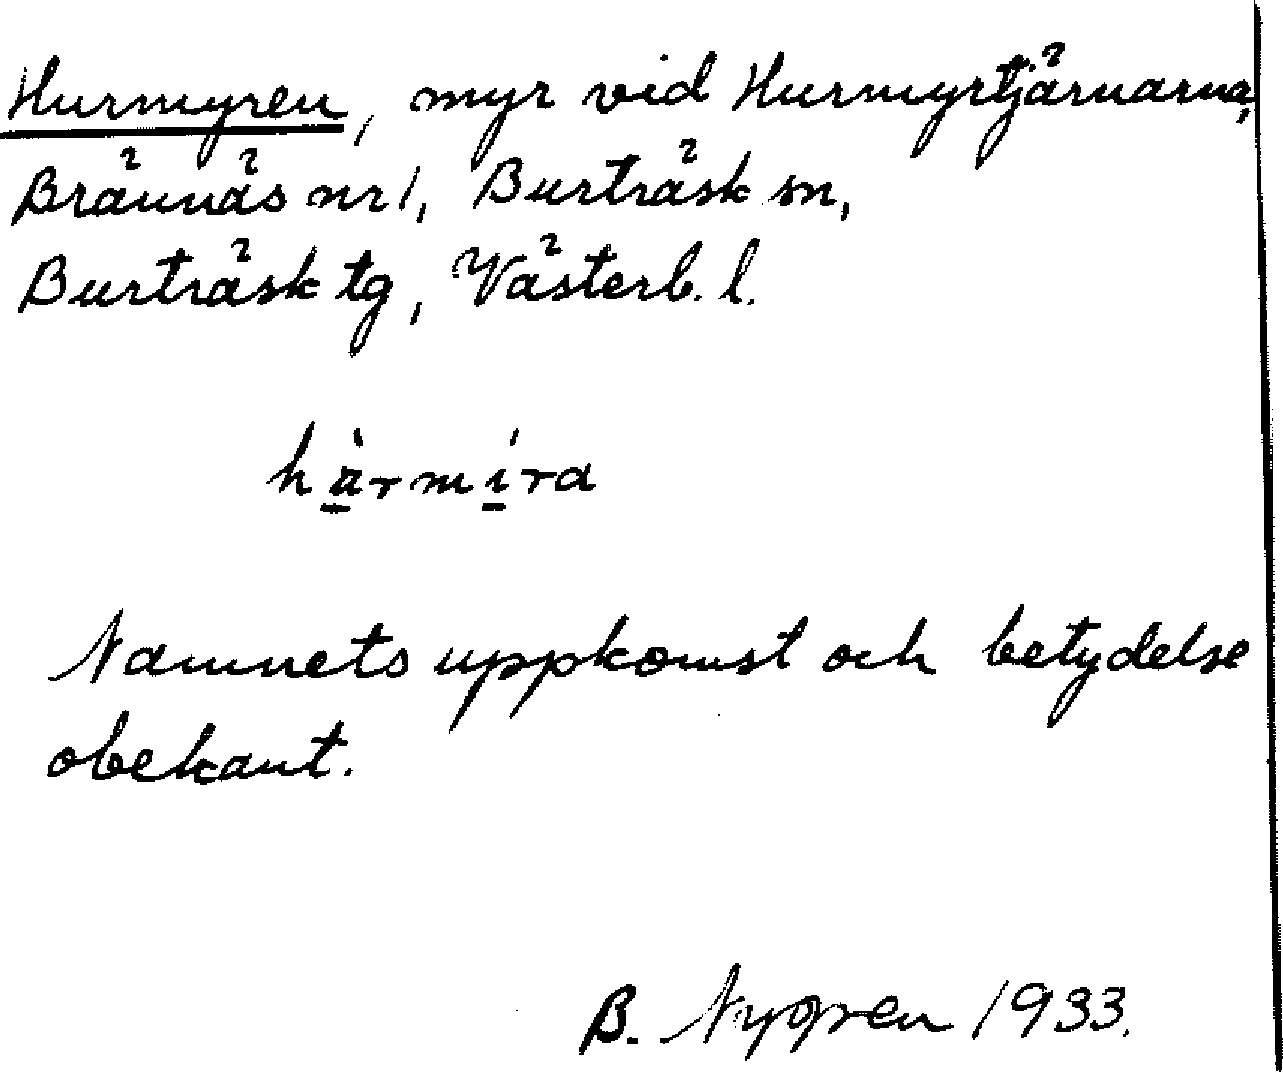 Hurmyren, myr vid Hurmyrtjärnarna,
Brännäs nr 1, Burträsk sn,
Burträsk tg, Västerb. l.
härmíra
Namnets uppkomst och betydelse
obekant.
B. Nygren 1933.